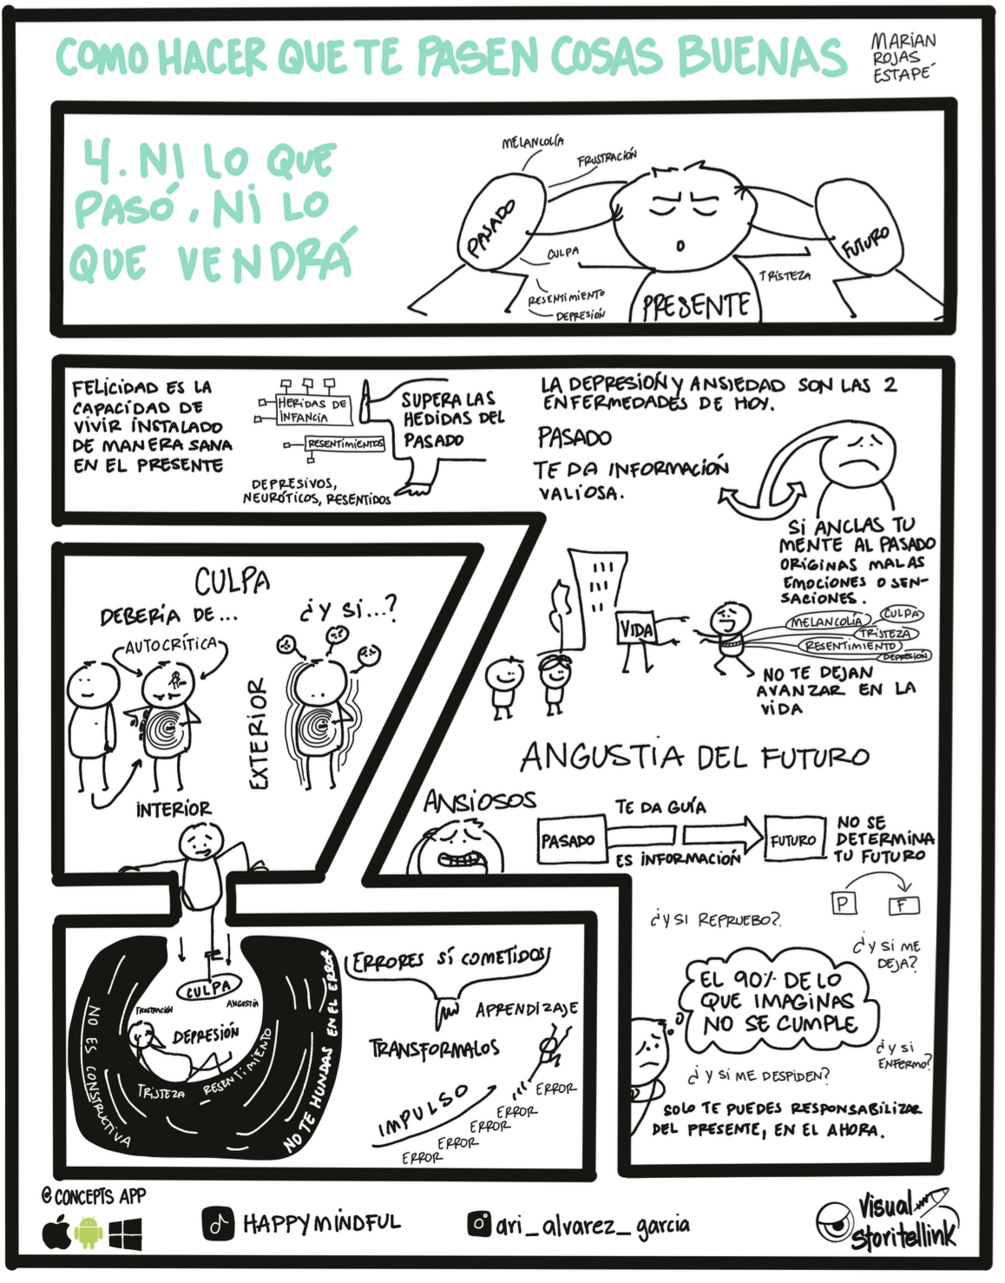 COMO HACER QUE TE PASEN COSAS BUENAS
MARIAN
ROJAS
ESTAPÉ
4. NI LO QUE
PASÓ, NI LO
QUE VENDRÁ
MELANCOLÍA
FRUSTRACIÓN
PASADO
CULPA
RESENTIMIENTO
DEPRESIÓN
PRESENTE
TRISTEZA
FUTURO
FELICIDAD ES LA
CAPACIDAD DE
VIVIR INSTALADO
DE MANERA SANA
EN EL PRESENTE
HERIDAS DE
INFANCIA
RESENTIMIENTOS
DEPRESIVOS,
NEURÓTICOS, RESENTIDOS
SUPERA LAS
HEDIDAS DEL
PASADO
LA DEPRESIÓN Y ANSIEDAD SON LAS 2
ENFERMEDADES DE HOY.
PASADO
TE DA INFORMACIÓN
VALIOSA.
SI ANCLAS TU
MENTE AL PASADO
ORIGINAS MALAS
EMOCIONES O SEN-
SACIONES.
VIDA
MELANCOLÍA
CULPA
TRISTEZA
RESENTIMIENTO
DEPRESIÓN
NO TE DEJAN
AVANZAR EN LA
VIDA
CULPA
DEBERÍA DE...
¿Y SI...?
AUTOCRÍTICA
EXTERIOR
INTERIOR
ANGUSTIA DEL FUTURO
ANSIOSOS
PASADO
TE DA GUÍA
ES INFORMACIÓN
FUTURO
NO SE
DETERMINA
TU FUTURO
P
F
¿Y SI REPRUEBO?
¿Y SI ME
DEJA?
EL 90% DE LO
QUE IMAGINAS
NO SE CUMPLE
¿Y SI
ENFERMO?
¿Y SI ME DESPIDEN?
SOLO TE PUEDES RESPONSABILIZAR
DEL PRESENTE, EN EL AHORA.
CULPA
FRUSTRACIÓN
ANGUSTIA
DEPRESIÓN
TRISTEZA
RESENTIMIENTO
NO ES CONSTRUCTIVA
NO TE HUNDAS EN EL ERROR
ERRORES SÍ COMETIDOS
APRENDIZAJE
TRANSFORMALOS
IMPULSO
ERROR
ERROR
ERROR
ERROR
ERROR
@ CONCEPTS APP
HAPPYMINDFUL
ari_alvarez_garcia
Visual
Storitellink